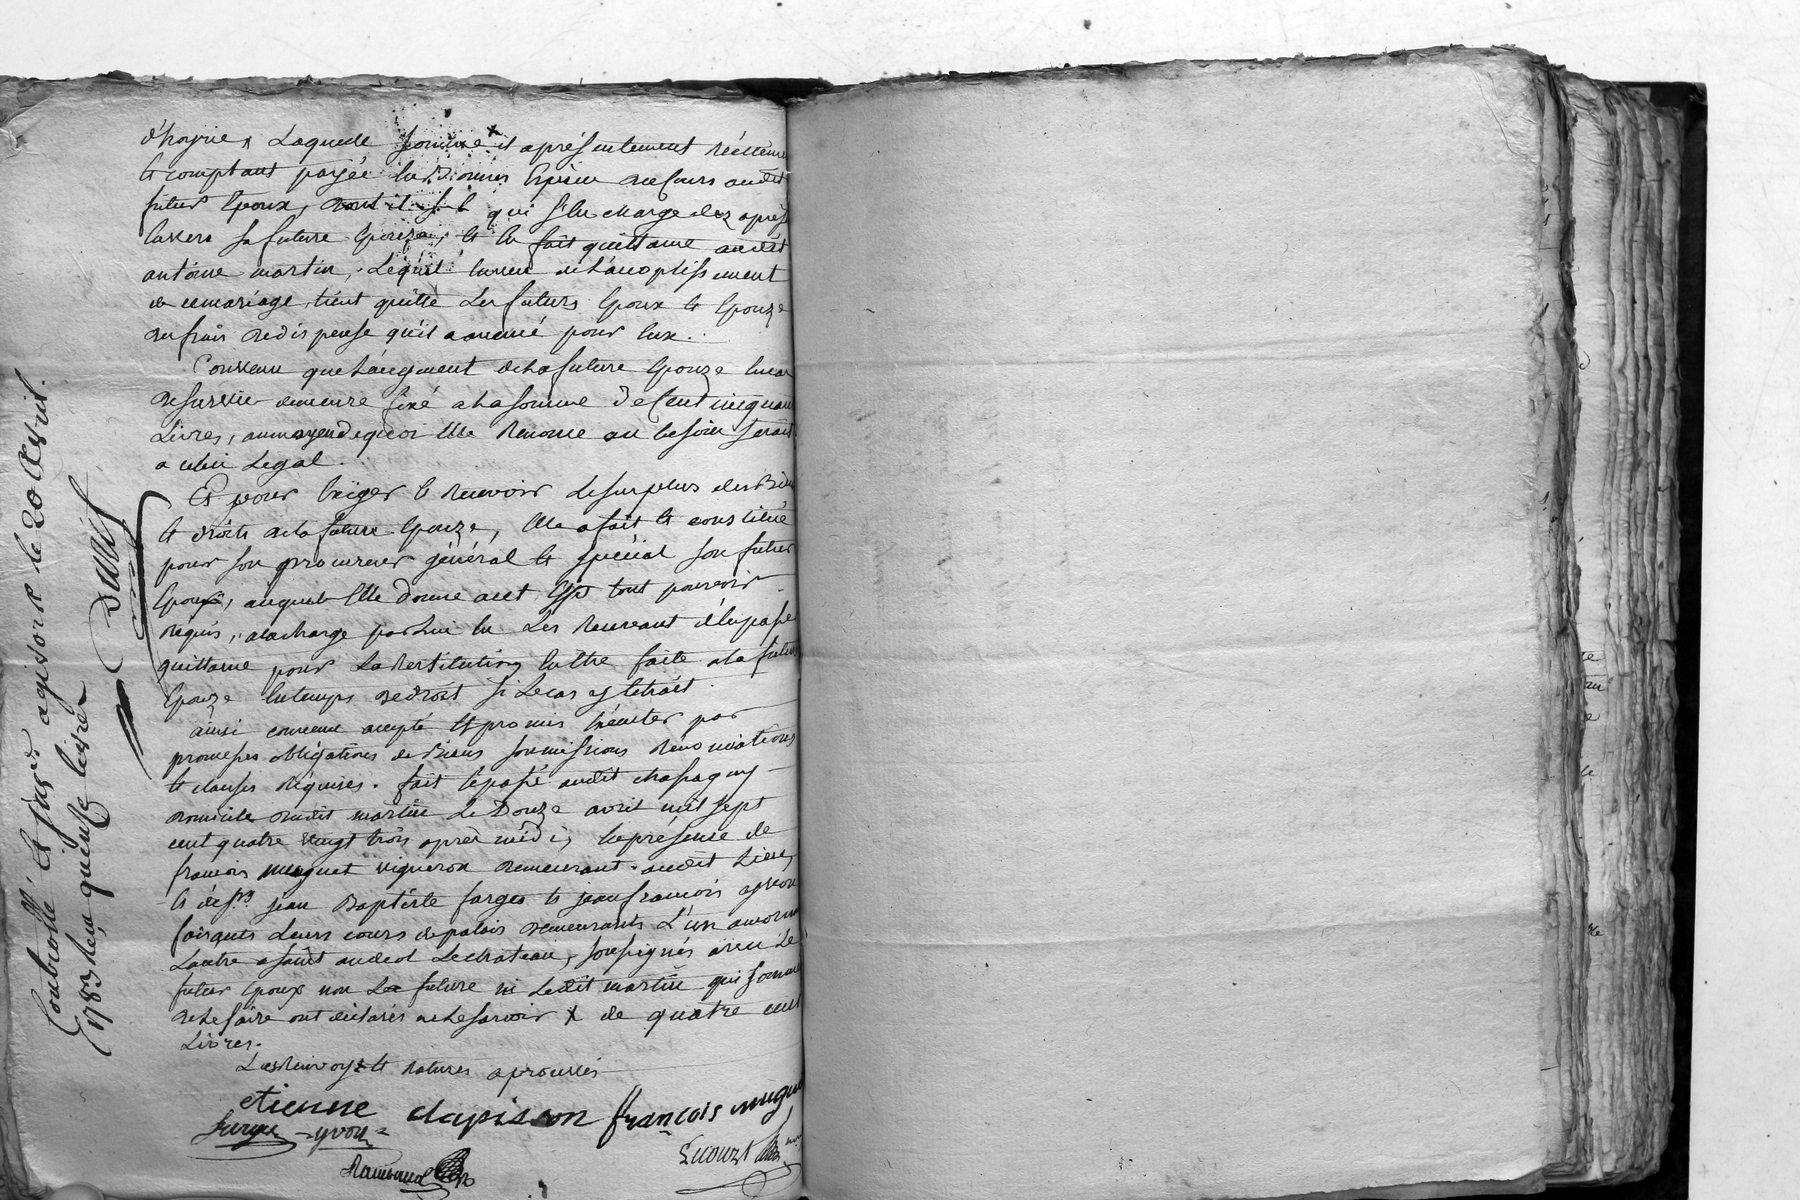 d'hoyrie, Laquelle somme x et a présentement réellement
et comptant payée en deniers Espèces aucours audit
futur Epoux, qui s'en charge elez après
envers sa future Epouze, et en fait quittance audit
antoine martin, Lequel en vue de L'accoplissement
de ce mariage, tient quitte Les futurs Epoux et Epouze
des frais de dispense qu'il a avancé pour Eux.
Convenu que L'augment de la future Epouze En cas
de survie demeure fixé a la somme de Cent cinquante
Livres, aumoyen de quoi Elle Renonce au besoin serait
a celui Legal.
Et pour Exiger et Recevoir Le surplus des Biens
et droits de la future Epouze, Elle a fait et constitué
pour son procureur général et spécial son futur
Epoux, auquel Elle donne a cet Effet tout pouvoir
Requis, a la charge par Lui En Les Recevant d'En passer
quittance pour La Restitution En Etre faite a la future
Epouze En temps de droit si Le cas y Echéait.
ainsi convenu accepté Et promis Exécuter par
promesses obligations de Biens soumissions Renonciations
et clauses Requises. fait Et passé audit chassagny
domicile dudit martin Le Douze avril mil sept
cent quatre vingt trois après midi, En présence de
francois muguet vigneron demeurant audit Lieu,
et de srs jean Baptiste farges et jean francois yvon
faisants Leurs cours de palais demeurants L'un a mornant
L'autre a saint andeol Le chateau, soussignés avec Le
futur Epoux non La future ni Ledit martin qui sommés
de Le faire ont déclarés ne Le savoir x de quatre cent
Livres.
Les Renvoys et ratures aprouvés
etienne clapisson françois muguet
farges yvon
Controllé et jnsré a gisors le 20 avril
1783 Reçu quinze livres